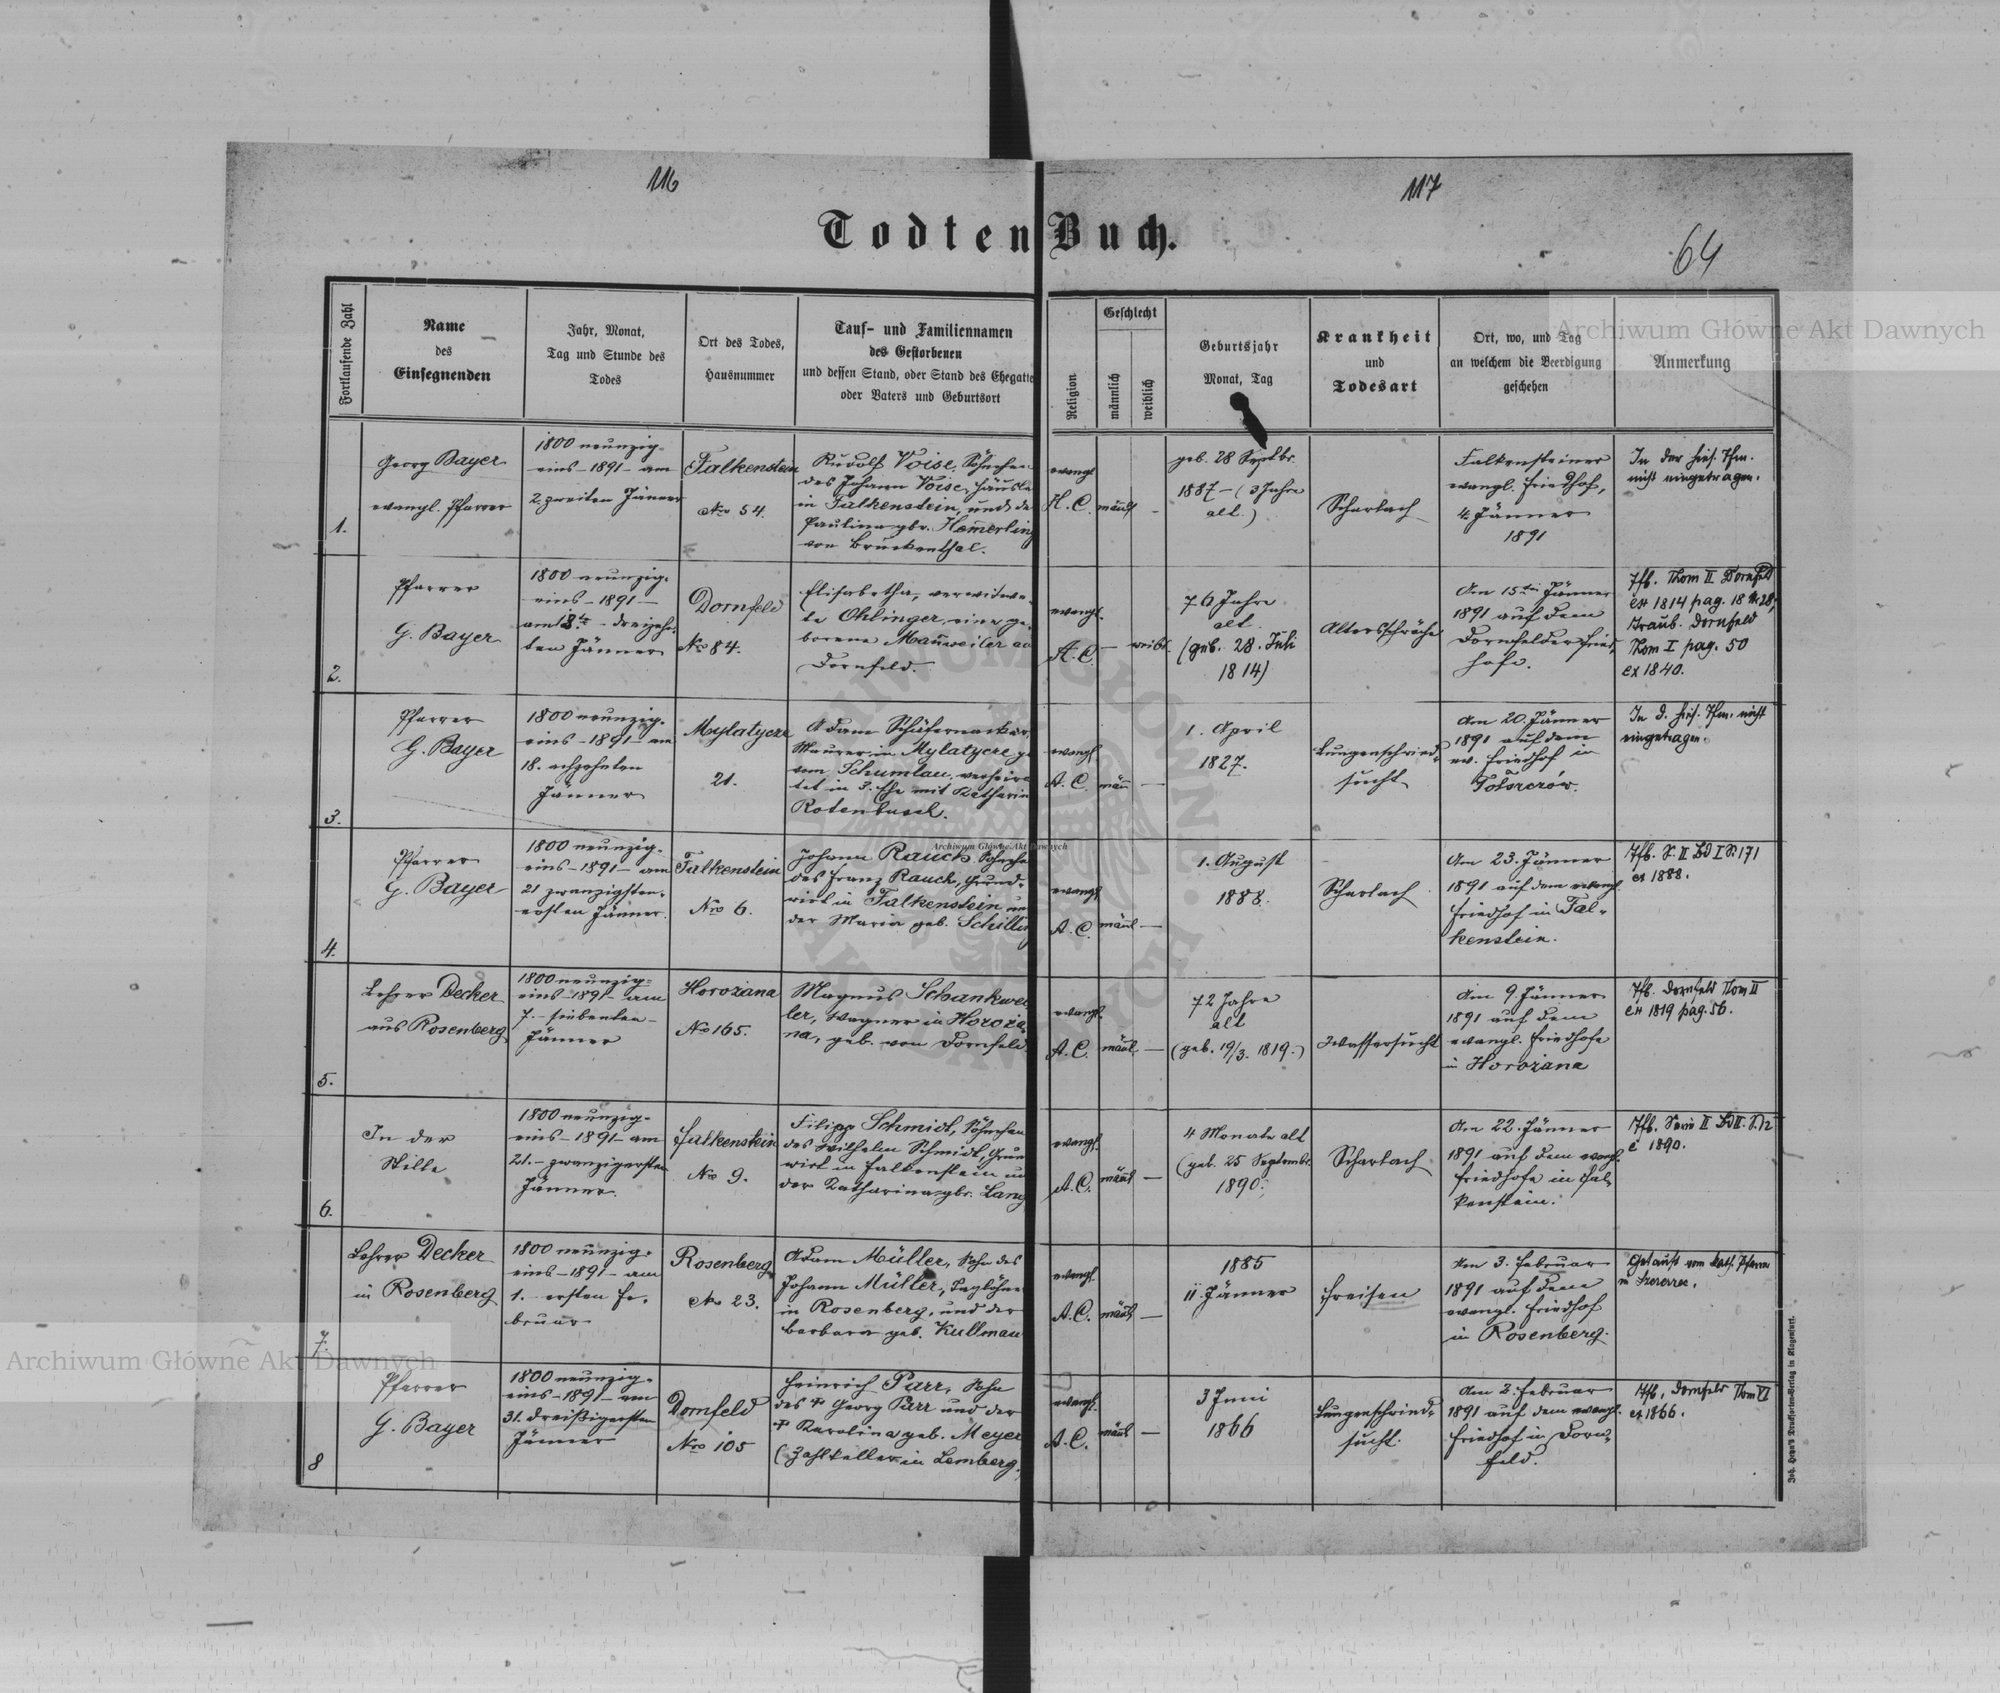 116
117
Todten Buch.
64
Fortlaufende Zahl
Name
des
Einsegnenden
Jahr, Monat,
Tag und Stunde des
Todes
Ort des Todes,
Hausnummer
Tauf- und Familiennamen
des Gestorbenen
und dessen Stand, oder Stand des Ehegatte
oder Vaters und Geburtsort
Religion
Geschlecht
männlich
weiblich
Geburtsjahr
Monat, Tag
Krankheit
und
Todesart
Ort, wo, und Tag
an welchem die Beerdigung
geschehen
Anmerkung
1.
Georg Bayer
evangl. Pfarrer
1800 neunzig-
eins - 1891 - am
2 zweiten Jänner
Falkenstein
Nro 54.
Rudolf Voise, Söhnchen
des Johann Voise, Häusle
in Falkenstein, und de
Paulina gbr. Hemerling
von Bruckenthal.
evangl
H. C.
männl
geb. 28 Septbr.
1887 - (3 Jahre
alt.)
Scharlach
Falkensteiner
evangl. Friedhof,
4. Jänner
1891
In der hies. Tfm.
nicht eingetragen.
2.
Pfarrer
G. Bayer
1800 neunzig-
eins - 1891 -
am 13ten - dreizehn-
ten Jänner
Dornfeld
Nro 84.
Elisabetha, verwitwe-
te Ohlinger, eine ge-
borene Manweiler au
Dornfeld.
evangl.
A. C.
weibl.
76 Jahre
alt.
(geb. 28. Juli
1814)
Altersschwäche
Am 15ten Jänner
1891 auf dem
Dornfelder Fried-
hofe.
Tfb. Thom II Dornfeld
ex 1814 pag. 18 N. 28;
Traub. Dornfeld
Thom I pag. 50
ex 1840.
3.
Pfarrer
G. Bayer
1800 neunzig-
eins - 1891 - am
18. achzehnten
Jänner
Mylatycze
21.
Adam Schäfernacker,
Maurer in Mylatycze ge
von Schumlau, verheira
tet in 3. Ehe mit Katharin
Rotenbusch.
evangl.
A. C.
män
1. April
1827.
Lungenschwind-
sucht
Am 20. Jänner
1891 auf dem
ev. Friedhof in
Tołszczów.
In d. hies. Tfm. nicht
eingetragen.
4.
Pfarrer
G. Bayer
1800 neunzig-
eins - 1891 - am
21 zwanzigsten-
ersten Jänner.
Falkenstein
Nro 6.
Johann Rauch, Söhnche
des Franz Rauch, Grund-
wirt in Falkenstein un
der Maria geb. Schilling
evangl
A. C.
mänl
1. August
1888.
Scharlach
Am 23. Jänner
1891 auf dem evangl.
Friedhof in Fal-
kenstein.
Tfb. S. II Bd I S. 171
ex 1888.
5.
Lehrer Decker
aus Rosenberg
1800 neunzig-
eins - 1891 - am
7. - siebenten -
Jänner
Horożana
Nro 165.
Magnus Schankwei
ler, Wagner in Horoża-
na, geb. von Dornfeld.
evangl.
A. C.
mänl
72 Jahre
alt
(geb. 19/3. 1819.)
Wassersucht
Am 9. Jänner
1891 auf dem
evangl. Friedhofe
in Horożana
Tfb. Dornfeld Thom II
ex 1819 pag. 56.
6.
In der
Stille
1800 neunzig-
eins - 1891 - am
21. - zwanzigersten
Jänner.
Falkenstein
No 9.
Filipp Schmidt, Söhnchen
des Wilhelm Schmidt, Grun
wirt in Falkenstein un
der Katharina gbr. Lang
evangl.
A. C.
mänl
4 Monate alt
(geb. 25 Septembr.
1890.
Scharlach
Am 22. Jänner
1891 auf dem evangl.
Friedhofe in Fal-
kenstein.
1890.
7.
Lehrer Decker
in Rosenberg
1800 neunzig-
eins - 1891 - am
1. - ersten Fe-
bruar
Rosenberg
No 23.
Adam Müller, Sohn des
Johann Müller, Taglöhner
in Rosenberg, und der
Barbara geb. Kullmann
evangl.
A. C.
mänl
1885
11. Jänner
Freisen
Am 3. Februar
1891 auf dem
evangl. Friedhof
in Rosenberg.
Getauft vom kath. Pfarrer
in Szczerzec.
8
Pfarrer
G. Bayer
1800 neunzig-
eins - 1891 - am
31. dreißigersten
Jänner
Dornfeld
Nro 105
Heinrich Parr, Sohn
des † Georg Parr und der
† Karolina geb. Meyer
(Zahlkellner in Lemberg.
evangl.
A. C.
mänl
3 Juni
1866
Lungenschwind-
sucht.
Am 2. Februar
1891 auf dem evangl.
Friedhof in Dorn-
feld.
Tfb. Dornfeld Thom VI
ex 1866.
Joh. Heyn's Drucksorten-Verlag in Klagenfurt.
Archiwum Główne Akt Dawnych
Archiwum Główne Akt Dawnych
Archiwum Główne Akt Dawnych